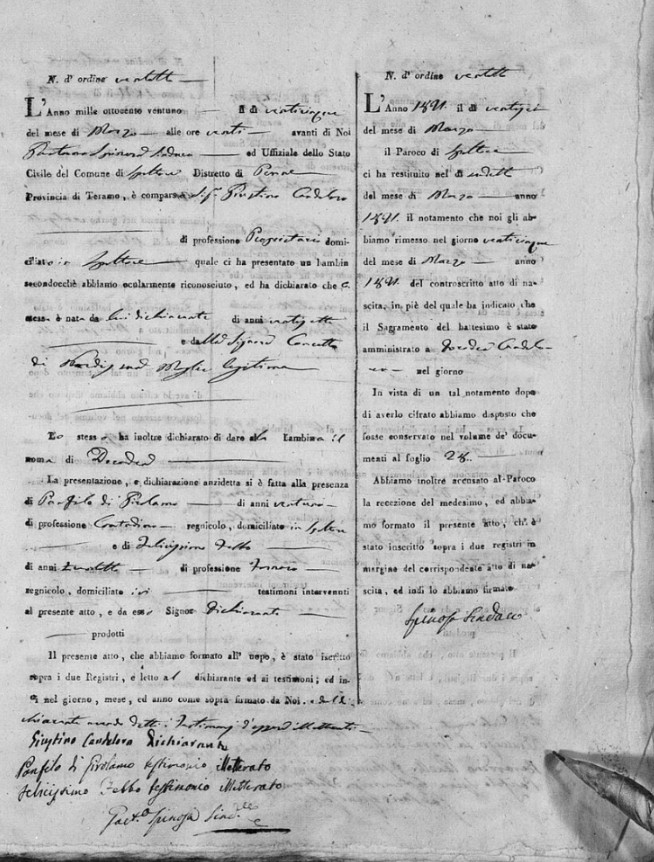 N. d' ordine ventotto
L'Anno mille ottocento ventuno il di venticinque
del mese di Marzo alle ore venti avanti di Noi
Gaetano Spinosa Sindaco ed Uffiziale dello Stato
Civile del Comune di Spoltore Distretto di Penne
Provincia di Teramo, è comparso Giustino Candeloro
di professione Proprietario domi-
ciliato in Spoltore quale ci ha presentato un bambin
secondocchè abbiamo ocularmente riconosciuto, ed ha dichiarato che
stess è nat da lui dichiarante di anni
e dalla Signora Concetta
di Moglie legittima
Lo stesso ha inoltre dichiarato di dare alla bambina il
nome di
La presentazione, e dichiarazione anzidetta si è fatta alla presenza
di Panfilo di Girolamo di anni
di professione Contadino regnicolo, domiciliato in Spoltore
e di Felicissimo Febbo
di anni di professione
regnicolo, domiciliato ivi testimoni intervenuti
al presente atto, e da esso Signor Dichiarante
prodotti
Il presente atto, che abbiamo formato all' uopo, è stato iscritto
sopra i due Registri, e letto al dichiarante ed ai testimoni; ed in-
di nel giorno, mese, ed anno come sopra firmato da Noi. e dal
dichiarante avendo detto i Testimonj d'essere illetterati
Giustino Candeloro Dichiarante
Panfilo di Girolamo testimonio illetterato
Felicissimo Febbo testimonio illetterato
Gaet.o Spinosa Sind.co
N. d' ordine ventotto
L'Anno 1821 il di ventisei
del mese di Marzo
il Paroco di Spoltore
ci ha restituito nel di sudetto
del mese di Marzo anno
1821. il notamento che noi gli ab-
biamo rimesso nel giorno venticinque
del mese di Marzo anno
1821 del controscritto atto di na-
scita, in piè del quale ha indicato che
il Sagramento del battesimo è stato
amministrato a Candelo-
ro nel giorno
In vista di un tal notamento dopo
di averlo cifrato abbiamo disposto che
fosse conservato nel volume de' docu-
menti al foglio 28.
Abbiamo inoltre accusato al Paroco
la recezione del medesimo, ed abbia-
mo formato il presente atto, ch' è
stato inscritto sopra i due registri in
margine del corrispondente atto di na-
scita, ed indi lo abbiamo firmato
Spinosa Sindaco